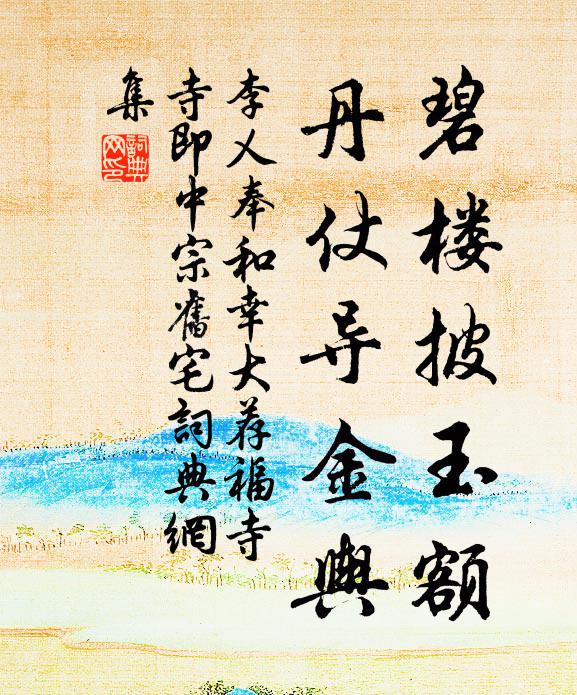 碧楼披玉额
丹仗导金舆
李乂奉和幸大荐福寺
寺即中宗舊宅詞典網
集
詞典网印